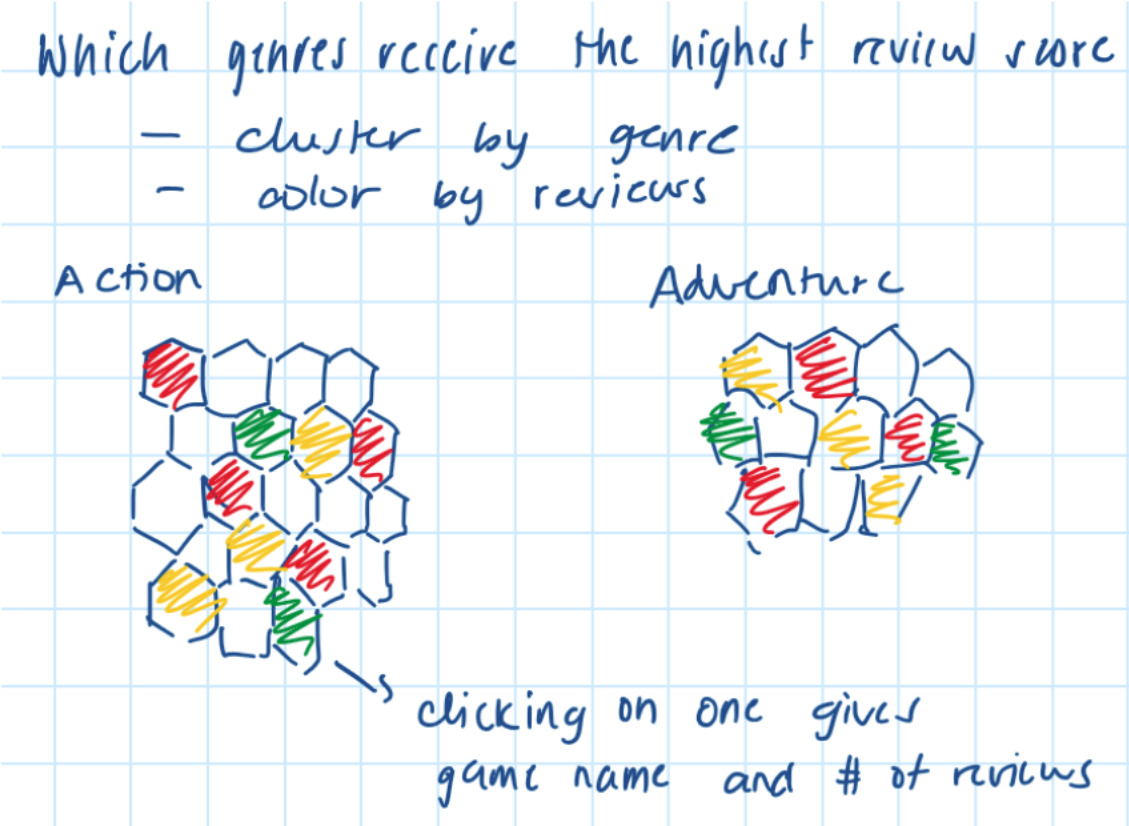 Which genres receive the highest review score
- cluster by genre
- color by reviews
Action
Adventure
clicking on one gives
game name and # of reviews